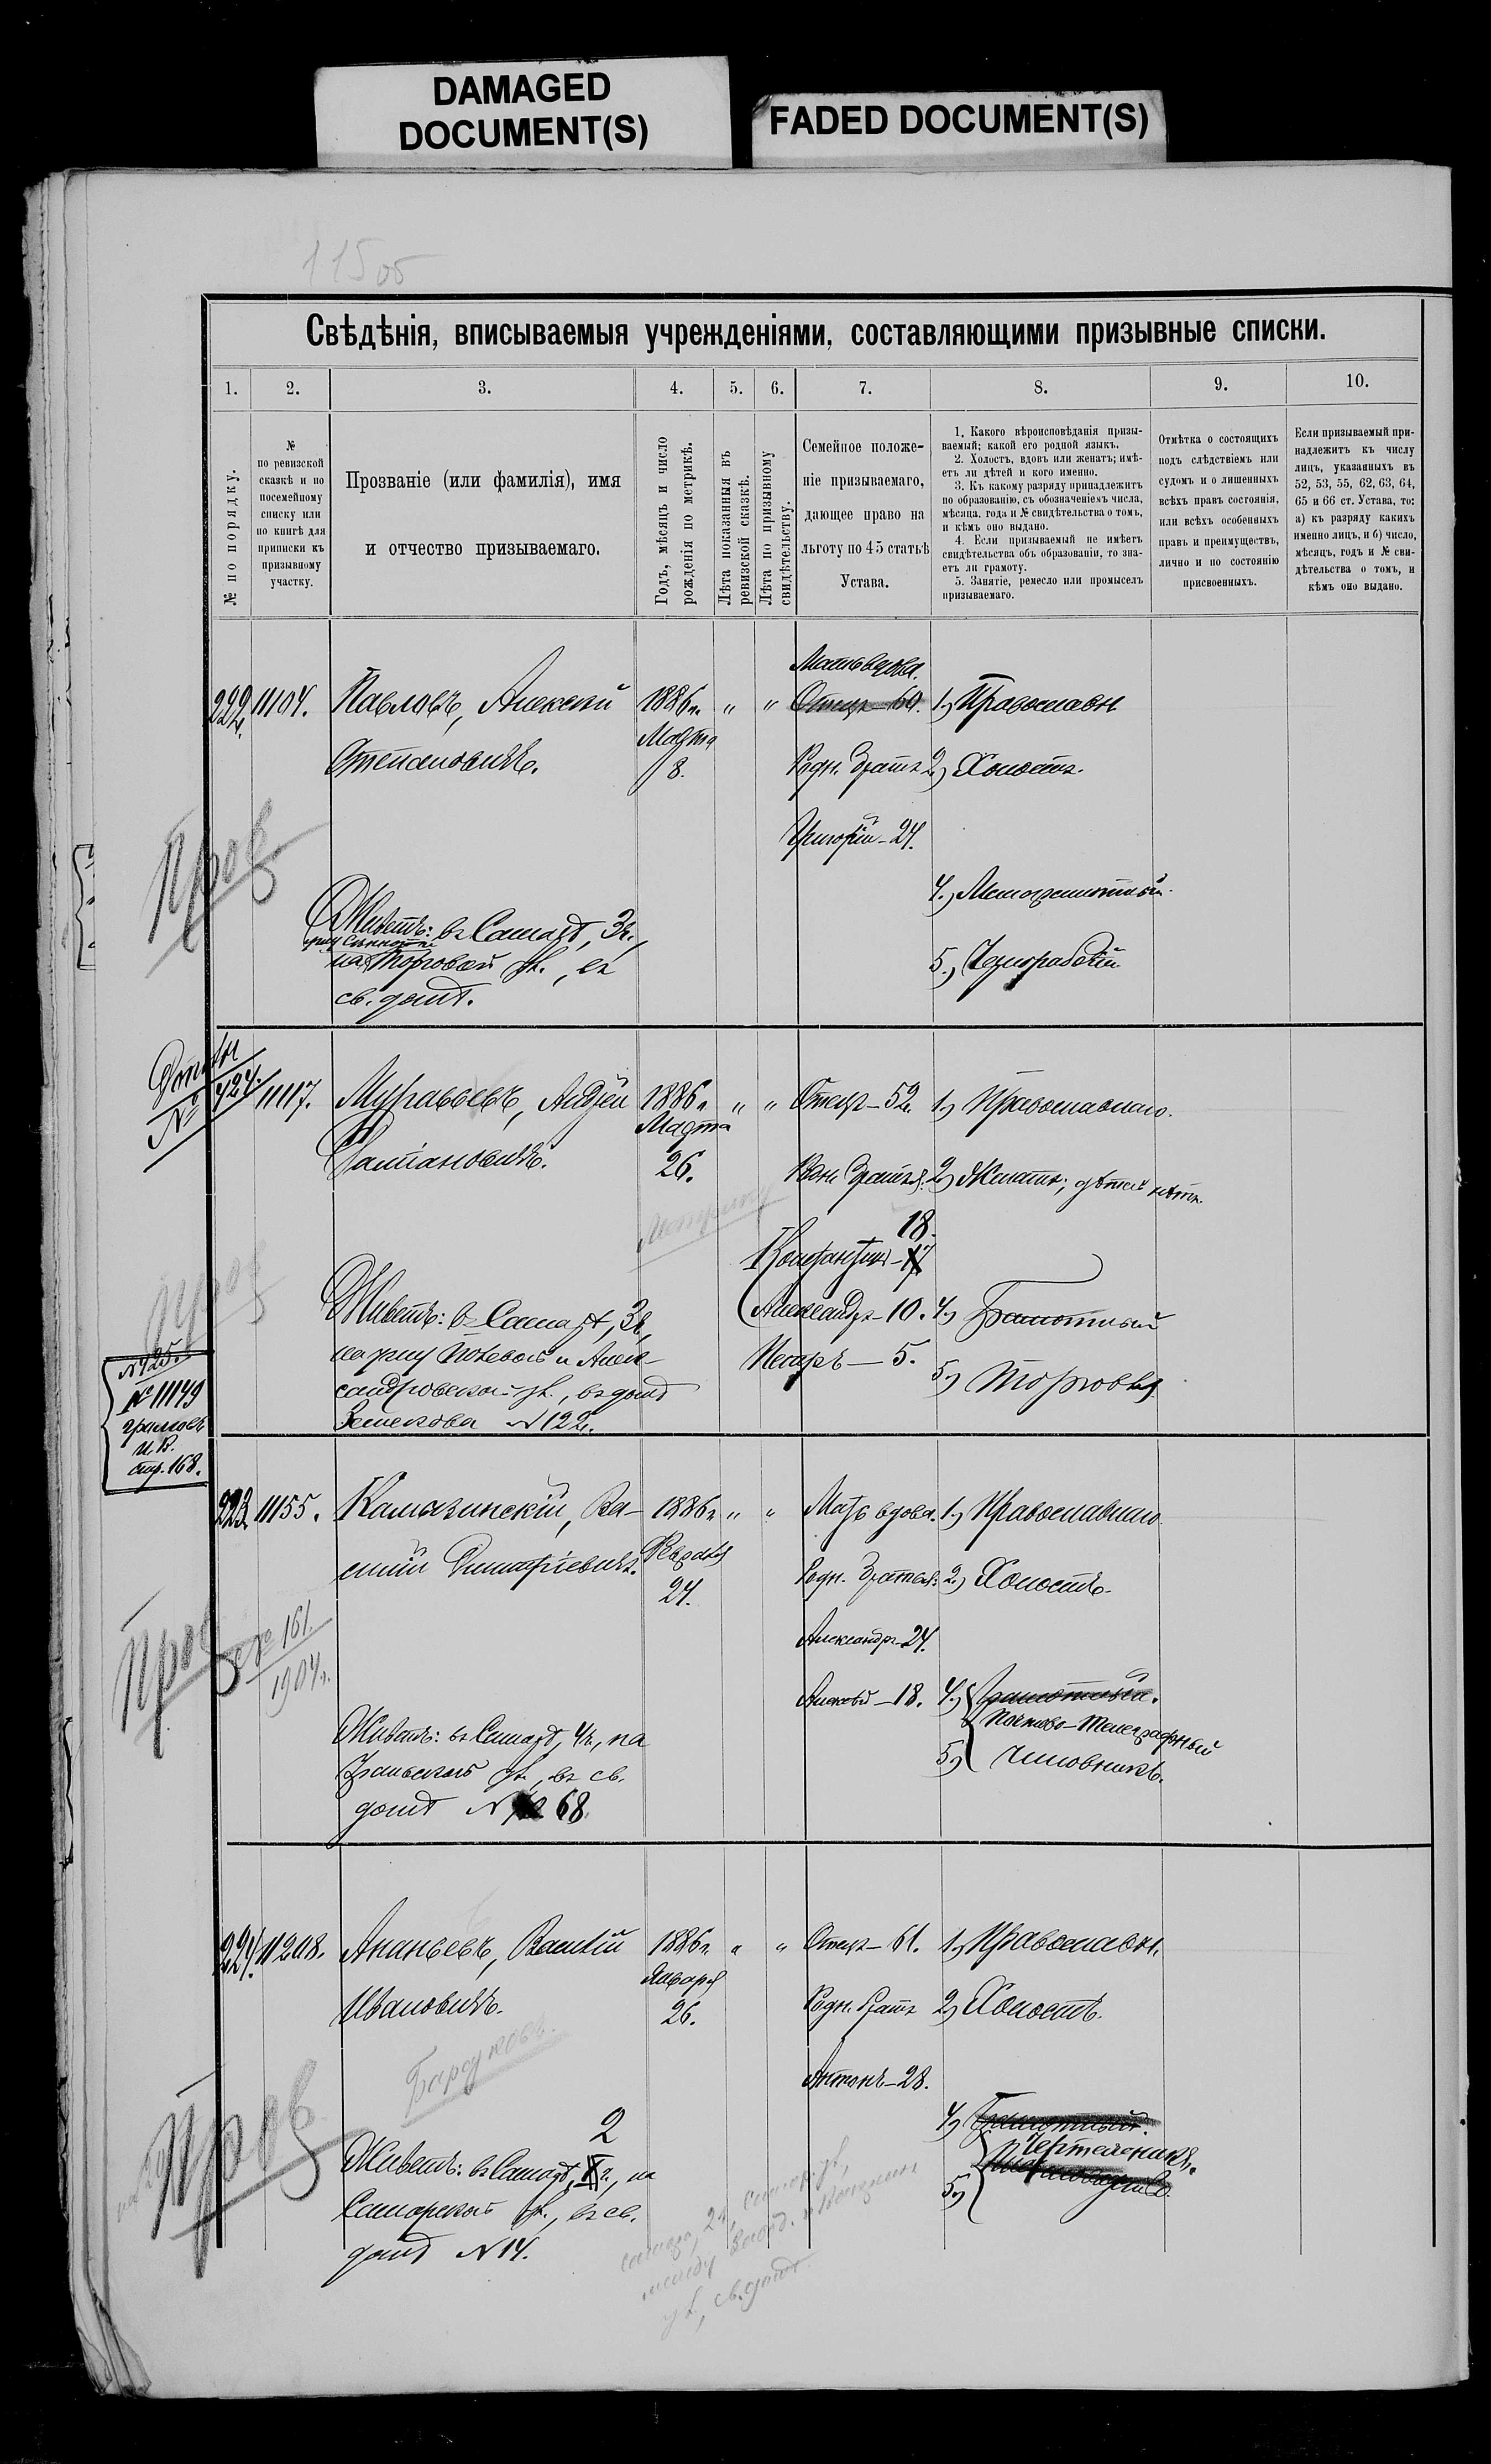 DAMAGED
DOCUMENT(S)
FADED DOCUMENT(S)
115об
Свѣдѣнія, вписываемыя учрежденіями, составляющими призывные списки.
1. 2. 3. 4. 5. 6. 7. 8. 9. 10.
№ по порядку.
№
по ревизской
сказкѣ и по
посемейному
списку или
по книгѣ для
приписки къ
призывному
участку.
Прозваніе (или фамилія), имя
и отчество призываемаго.
Годъ, мѣсяцъ и число
рожденія по метрикѣ.
Лѣта показанныя въ
ревизской сказкѣ.
Лѣта по призывному
свидѣтельству.
Семейное положе-
ніе призываемаго,
дающее право на
льготу по 45 статьѣ
Устава.
1. Какого вѣроисповѣданія призы-
ваемый; какой его родной языкъ.
2. Холостъ, вдовъ или женатъ; имѣ-
етъ ли дѣтей и кого именно.
3. Къ какому разряду принадлежитъ
по образованію, съ обозначеніемъ числа,
мѣсяца, года и № свидѣтельства о томъ,
и кѣмъ оно выдано.
4. Если призываемый не имѣетъ
свидѣтельства объ образованіи, то зна-
етъ ли грамоту.
5. Занятіе, ремесло или промыселъ
призываемаго.
Отмѣтка о состоящихъ
подъ слѣдствіемъ или
судомъ и о лишенныхъ
всѣхъ правъ состоянія,
или всѣхъ особенныхъ
правъ и преимуществъ,
лично и по состоянію
присвоенныхъ.
Если призываемый при-
надлежитъ къ числу
лицъ, указанныхъ въ
52, 53, 55, 62, 63, 64,
65 и 66 ст. Устава, то:
а) къ разряду какихъ
именно лицъ, и б) число,
мѣсяцъ, годъ и № сви-
дѣтельства о томъ, и
кѣмъ оно выдано.
Мать вдова.
222. 11104. Павловъ, Алексѣй 1886г. " " Отецъ-60. 1.) Православн
Степановичъ. Марта 8. Родн. братъ 2.) Холостъ.
Григорій-24.
Пров
4.) Малограмотный.
Живетъ: въ Самарѣ, 3ч.,
на Торговой ул., въ
св. домѣ.
5.) Чернорабочій
№ 424. 11117. Муравьевъ, Андрей 1886г. " " Отецъ-52. 1.) Православнаго.
Марта
26. 2.) Женатъ; дѣтей нѣтъ.
Метрику
18.
Константинъ-17
Александръ-10. 4.) Грамотный
Живетъ: въ Самарѣ, 3ч.,
на углу Полевой и Алек-
сандровской ул., въ домѣ
N 122.
5.) Торговля
5.
N 425.
№ 11149
И. В.
стр. 168.
223. 11155. Камазинскій, Ва- 1886г. " " Мать вдова. 1.) Православнаго
силій Димитріевичъ. Февраля 24. Родн. братья: 2.) Холостъ.
Александръ-24.
Алексѣй-18. 4.) Грамотный.
Почтово-Телеграфный
5.) чиновникъ.
Пров
№ 161.
1904г.
Живетъ: въ Самарѣ, 4ч., на
Уральской ул., въ св.
домѣ N 68.
224. 11208. Ананьевъ, Василій 1886г. " " Отецъ-61. 1.) Православн.
Ивановичъ. Января 26. Родн. братъ 2.) Холостъ.
Антонъ-28.
4.) Грамотный.
Чертежникъ.
5.)
Пров
2
Живетъ: въ Самарѣ, ч., на
Самарской ул., въ св.
домѣ N 14.
Самара, 2ч, Самарск,
между
ул., св. домѣ